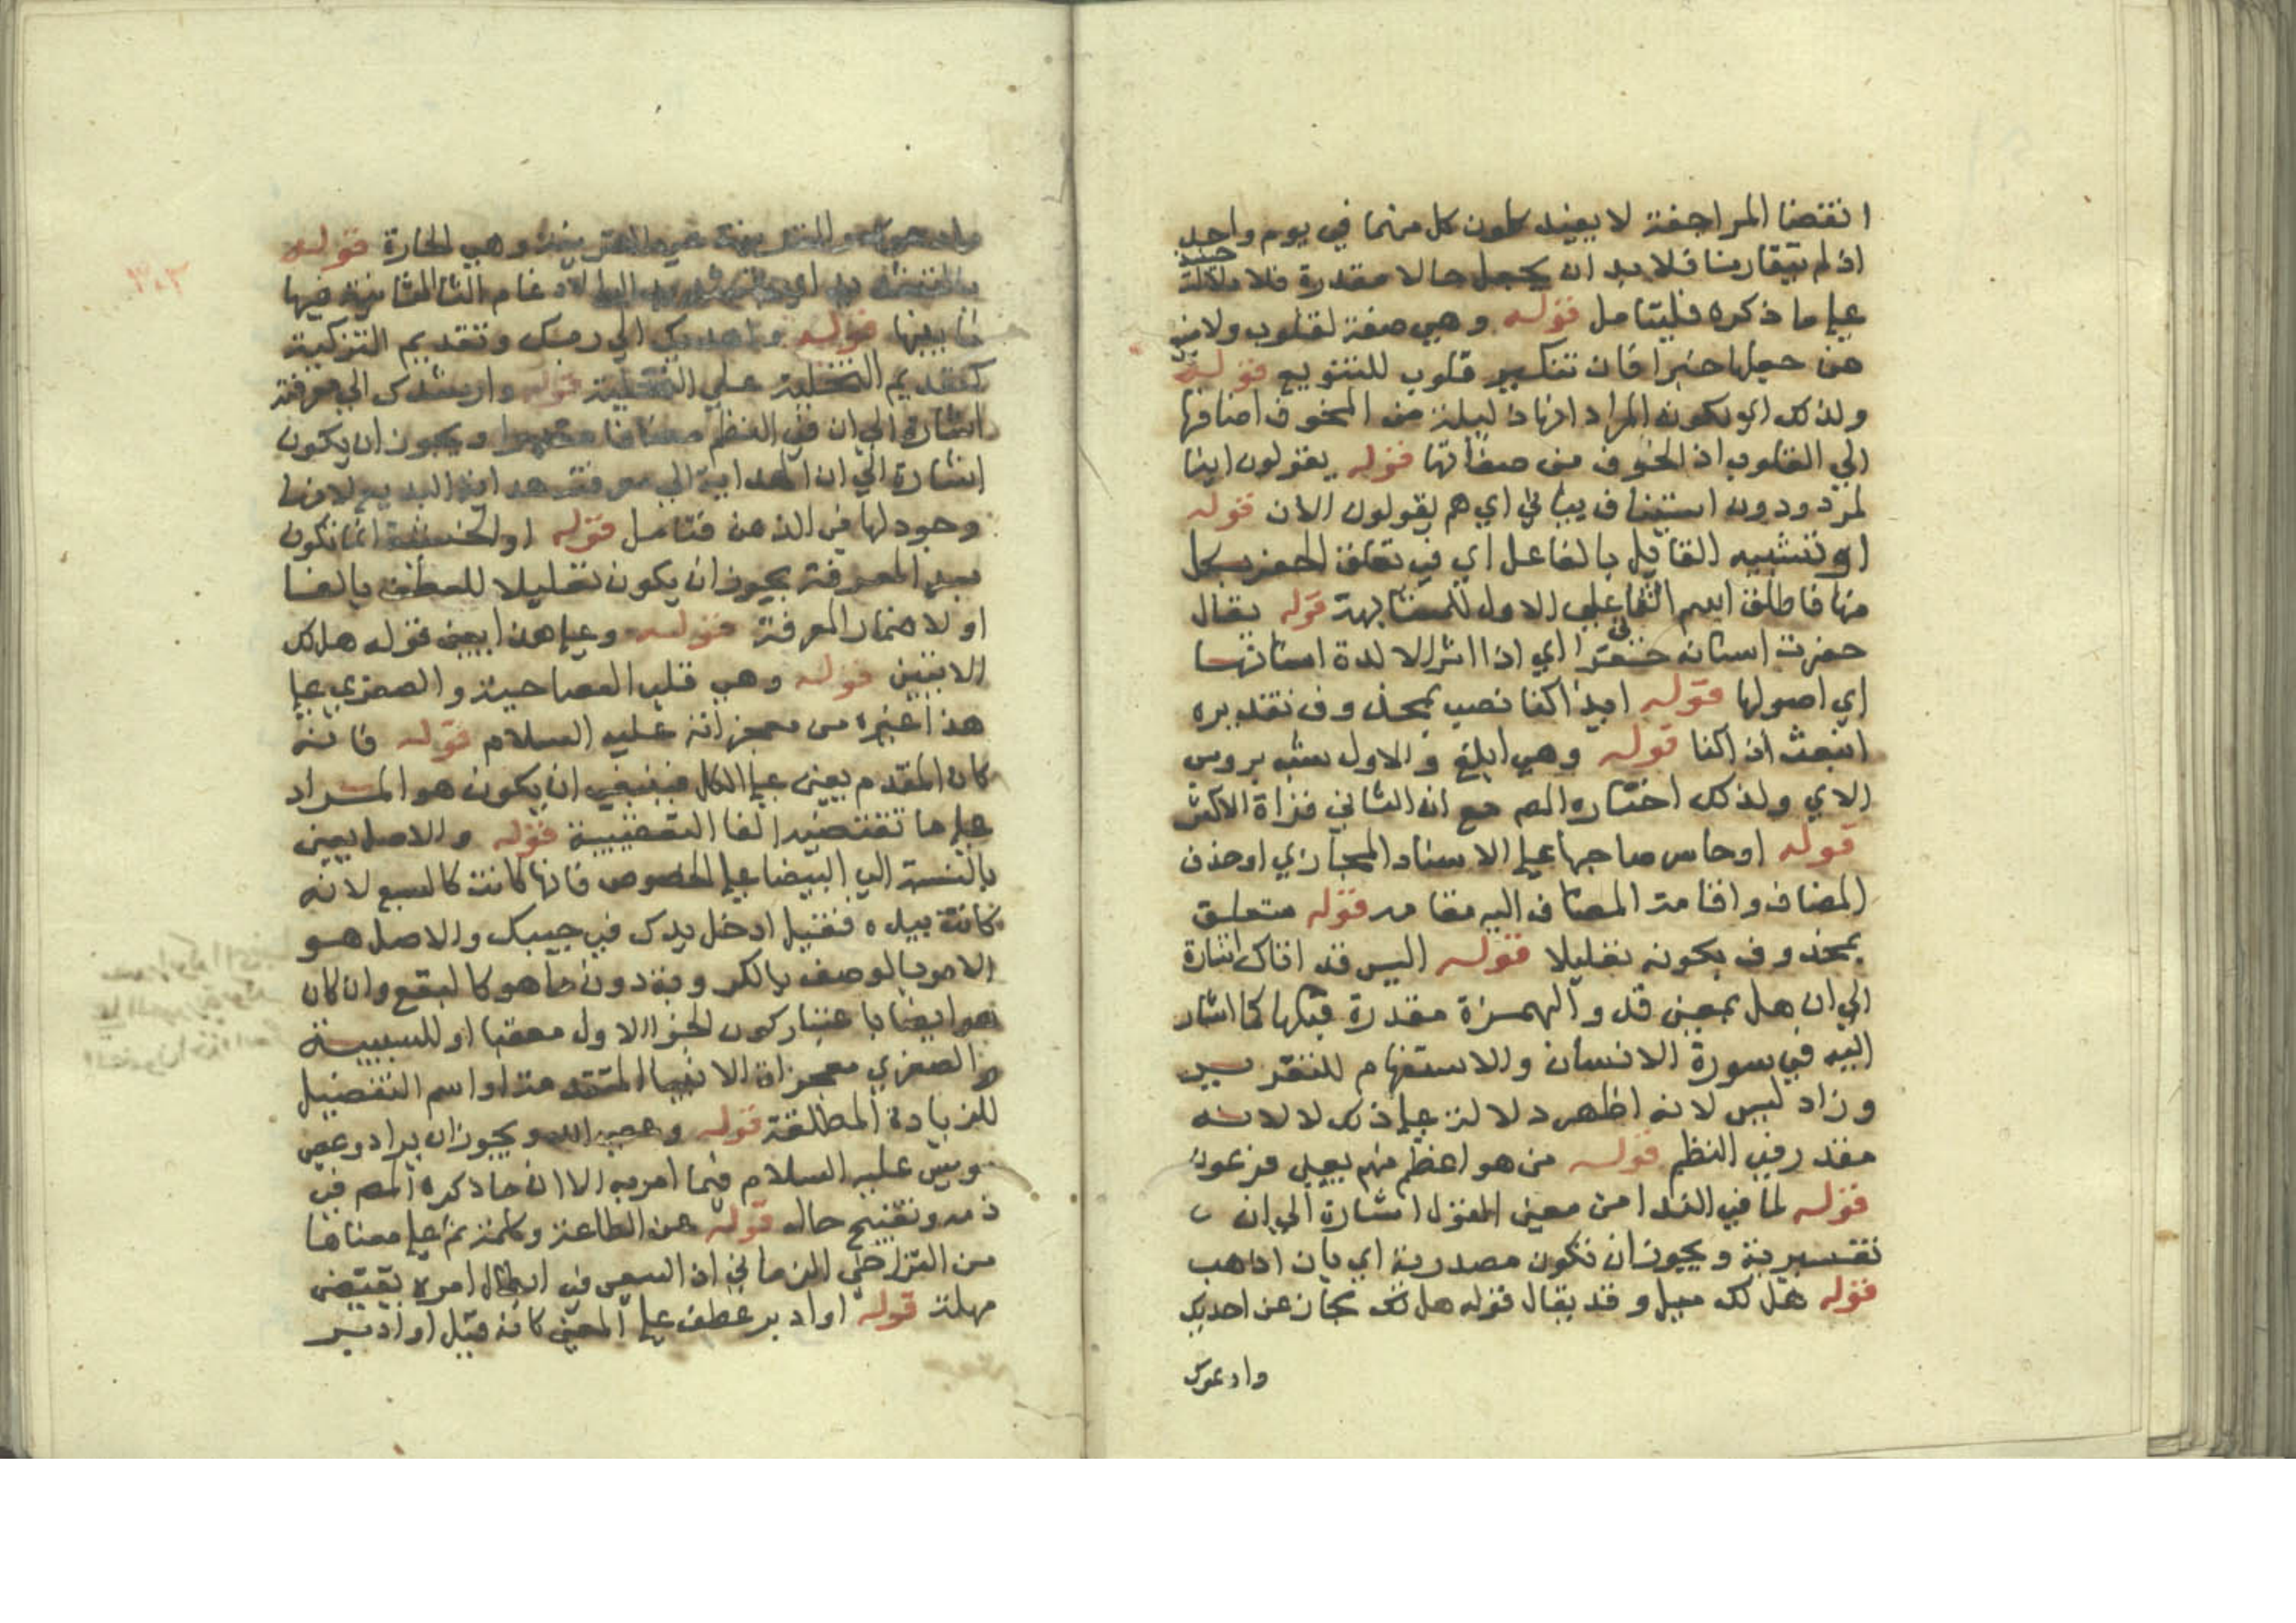 انقضا المراجفة لا يفيد كون كل منهما في يوم واحد
اذ لم يتقارنا فلا بد ان يجعل حالا مقدرة فلا دلالة حينئذ
علي ما ذكره فليتامل قوله وهي صفة لقلوب ولا منع
من جعلها خبرا فان تنكير قلوب للتنويع قوله
ولذلك اي لكون المراد انها ذليلة من الخوف اضافها
الي القلوب اذ الخوف من صفاتها قوله يقولون اينا
لمردودون استيناف بياني اي هم يقولون الان قوله
او تشبيه القابل بالفاعل اي في تعلق الحفر بكل
منها فاطلق اسم الثاني علي الاول للمشابهة قوله يقال
حفرت اسنانه حفرا اي اذا اثر الا لدة اسنانها
اي اصولها قوله ايذا كنا نصب بمحذوف تقديره
انبعث اذا كنا قوله وهي ابلغ والاول يشبه بروس
الاي ولذلك اختاره المص مع ان الثاني قراة الاكثر
قوله او حاس صاحبها علي الاسناد المجازي او حذف
المضاف واقامة المضاف اليه مقامه قوله متعلق
بمحذوف بكونه تعليلا قوله اليس قد اتاك اشارة
الي ان هل بمعني قد والهمزة مقدرة قبلها كما اشار
اليه في سورة الانسان والاستفهام للتقرير
وزاد ليس لانه اظهر دلالة علي ذلك لا لانه
مقدر في النظم قوله من هو اعظم منهم يعني فرعون
قوله لما في الندا من معني القول اشارة الي ان
تفسيرية ويجوز ان تكون مصدرية اي بان اذهب
قوله هل لك ميل وقد يقال قوله هل لك مجاز عن اجذبك
وادعوك
وادعوك والقرينة غير القرينة وهي الجارة قوله
بالتشديد اي بالتشديد الطا لادغام التا الثانية فيها
ثانيها قوله واهديك الي ربك وتقديم التزكية
كتقديم التخلية علي التحلية قوله وارشدك الي معرفة
اشارة الي ان في النظم مضافا مقدرا ويجوز ان يكون
اشارة الي ان الهداية الي معرفته هداية اليه
وجود لها في الذهن فتامل قوله اوالخشية انما تكون
بعد المعرفة يجوز ان يكون تعليلا للعطف بالفا
او لاضمار المعرفة قوله وعلي هذا يعني قوله هل لك
الاتيين قوله وهي قلب العصا حية والصغري علي
هذا غيره من معجزاته عليه السلام قوله فانه
كان المقدم يعني علي الكل فينبغي ان يكون هو المراد
علي ما تقتضيه الفا التعقيبية قوله والاصل يعني
بالنسبة الي البيضا علي الخصوص فانها كانت كالتبع لانه
كانت بيده فقيل ادخل يدك في جيبك والاصل هو
الاحري بالوصف بالكبر وبة دون ما هو كالتبع وان كان
هو ايضا باعتبار كون الجز الاول معقبا او للسببية
والصغري معجزات الانبيا المتقدمة او اسم التفضيل
للزيادة المطلقة قوله وعصي الله ويجوز ان يراد وعصي
موسي عليه السلام فيما امر به الا ان ما ذكره المص في
ذمه وتقبيح حاله قوله عن الطاعة وكلمة ثم علي معناها
من التراخي الزماني اذ السعي في ابطال امره يقتضي
مهلة قوله او ادبر عطف علي المعني كانه قيل او ادبر